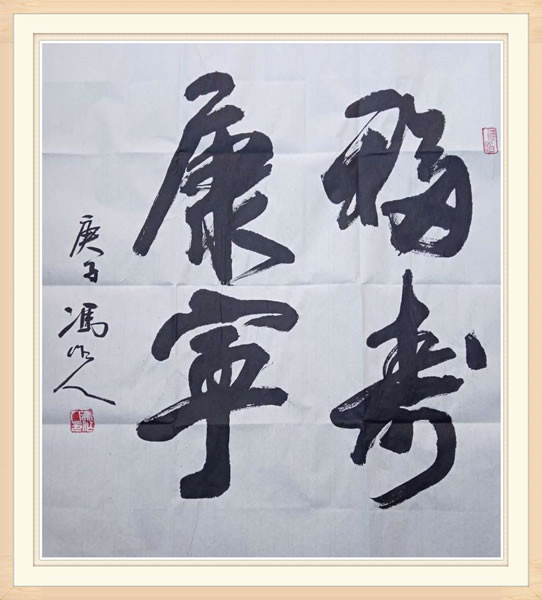 福寿
康宁
庚子 冯作人